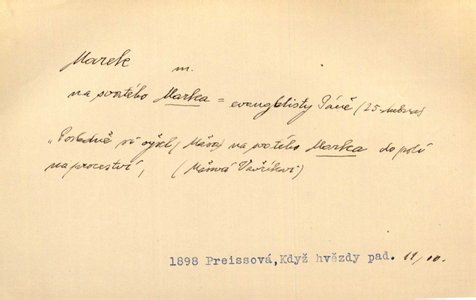 Marek m.
na svatého Marka = evangelisty Páně (25. dubna)
"Posledně si vyšel, / Máša / na svatého Marka do polí
na procesství, (
1898 Preissová, Když hvězdy pad. 11/10.